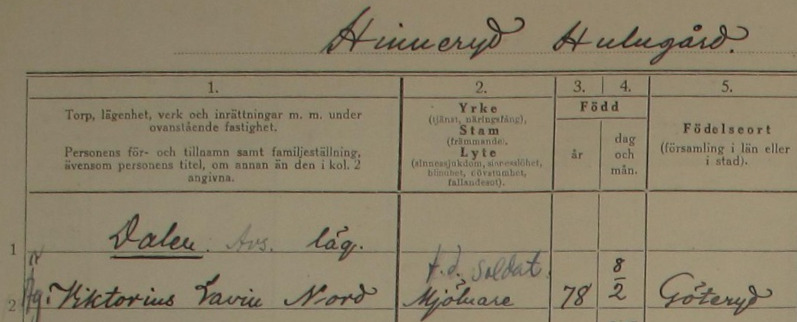 Hinneryd Hulugård.
1. 2. 3. 4. 5.
Torp, lägenhet, verk och inrättningar m. m. under
ovanstående fastighet.
Personens för- och tillnamn samt familjeställning,
ävensom personens titel, om annan än den i kol. 2
angivna.
Yrke
(tjänst, näringsfång),
Stam
(främmande),
Lyte
(sinnessjukdom, sinnesslöhet,
blindhet, dövstumhet,
fallandesot).
Född
år
dag
och
mån.
Födelseort
(församling i län eller
i stad).
1 Dalen. Avs. läg.
f. d. Soldat.
2 Viktorius Lavin Nord Mjölnare 78 8/2 Göteryd